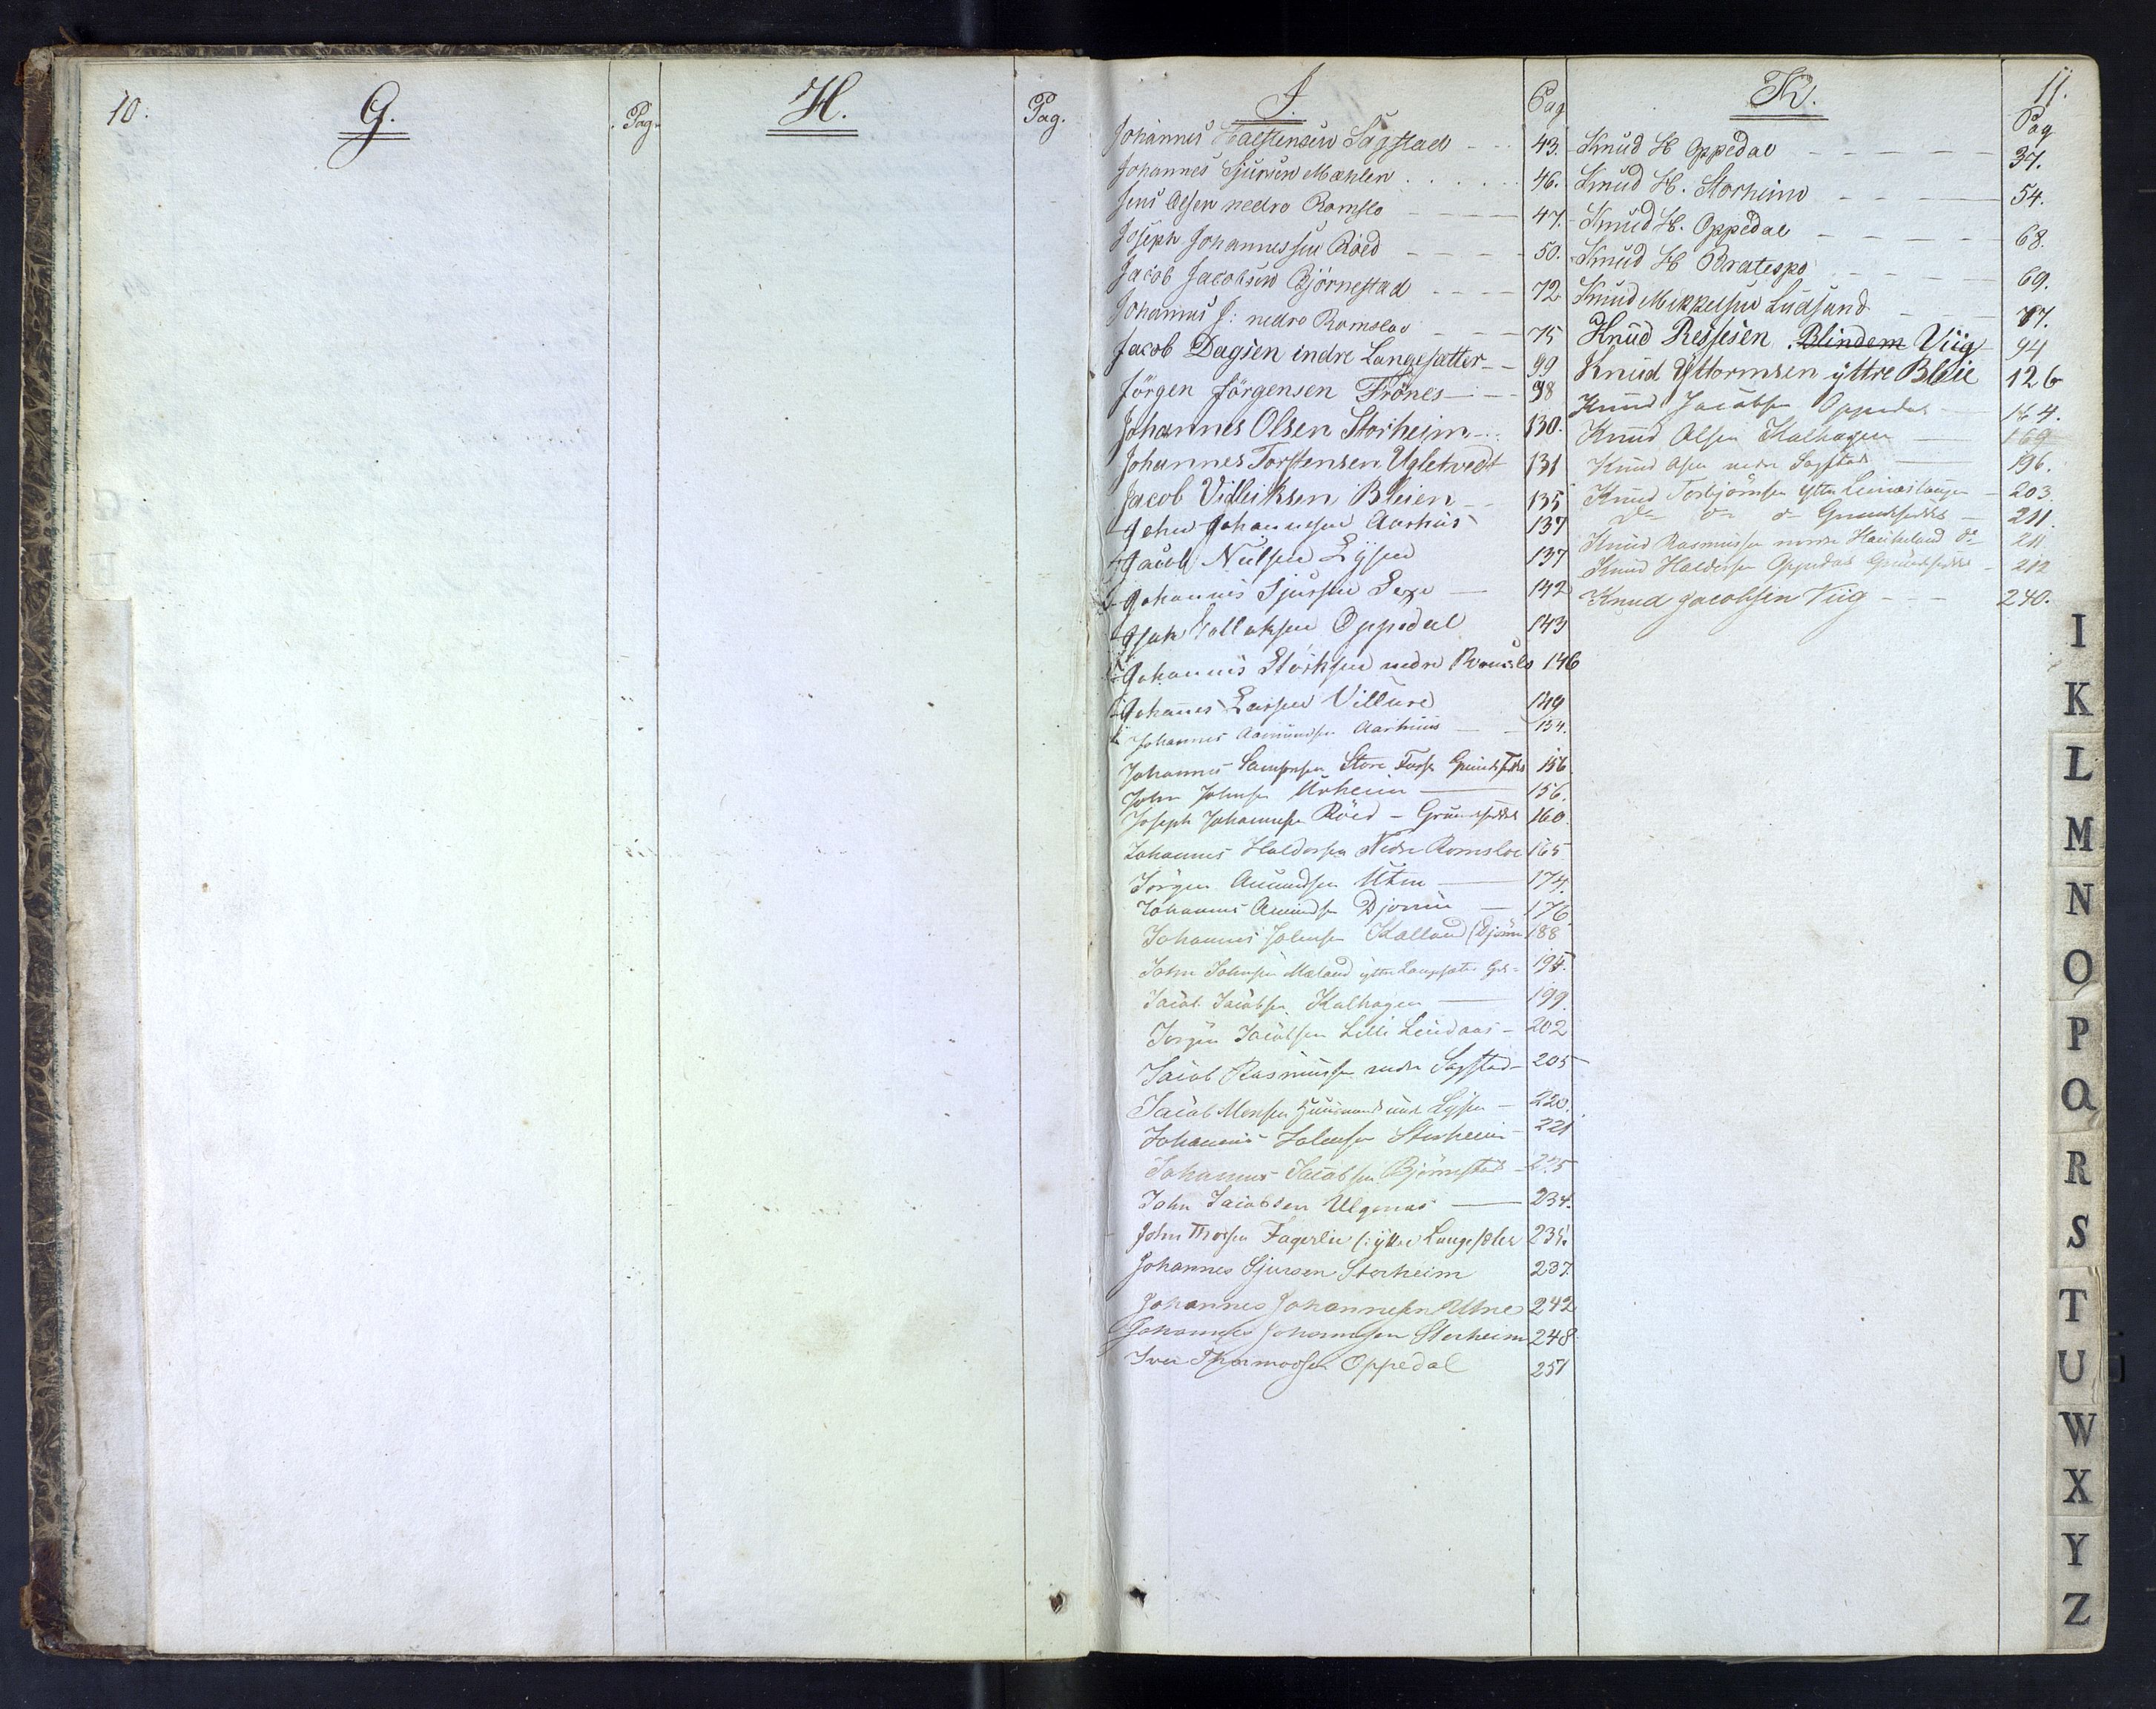 10.
G.
Pag.
H.
Pag.
J.
Pag
Johannes Halstensen Sagstad 43.
Johannes Sjursen Mæhlen 46.
Jens Olsen nedre Romslo 47.
Joseph Johannessen Röed 50.
Jacob Jacobsen Bjørnestad 72
Johannes J: nedre Romsloe 75
Jacob Dagsen indre Langesætter 99
Jörgen Jörgensen Frönes 98
Johannes Olsen Storheim 130.
Johannes Torstensen Ugletvedt 131
Jacob Vidleiksen Bleien 135
John Johannesen Aarhus 137
Jacob Nielsen Lysen 137
Johannes Sjursen Sexe 142
Isak Tollaksen Oppedal 143
Johannes Størksen nedre Romslo 146
Johannes Larsen Villure 149
Johannes Aamundsen Aarhuus 154.
Johannes Samsonsen Store Fosse 156
John Johnsen Urheim 156.
Joseph Johannesen Röed - Grundseddel 160
Johannes Haldorsen Nedre Romsloe 165
Jörgen Amundsen Utne 174.
Johannes Amundsen Djönne 176
Johannes Johnsen Kalland (Djönne 188
John Johnsen Mæland ytre Langesæter 195.
Jacob Jacobsen Kalhagen 199.
Jörgen Jacobsen Lille Lindaas 202
Jacob Rasmussen nedre Sagstad 205
Jacob Monsen Huusmand Lysen 220.
Johannes Johnsen Storheim 221
Johannes Jacobsen Bjørnestad 225
John Jacobsen Ulgenæs 234.
John Thorsen Fagerlie (: yttre Langesæter 235.
Johannes Sjursen Storheim 237.
Johannes Johannesen Utne 242
Johannes Johannesen Storheim 248
Iver Thormodsen Oppedal 251
K.
11.
Pag
Knud H Oppedal 37.
Knud H. Storheim 54.
Knud H. Oppedal 68.
Knud H Bratespe 69.
Knud Mikkelsen Ladsund 77.
Knud Reisesen Blindem Viig 94
Knud Guttormsen yttre Bleie 126
Knud Jacobsen Oppedal 164.
Knud Olsen Kalhagen 169
Knud Olsen nedre Sagstad 196.
Knud Torbjörnsen ytre 203.
Do Do do Grundseddel 211.
Knud Rasmussen nordre Haukeland do 211
Knud Haldorsen Oppedal Grundseddel 212
Knud Jacobsen Viig 240.
I
K
L
M
N
O
P
Q
R
S
T
U
W
X
Y
Z